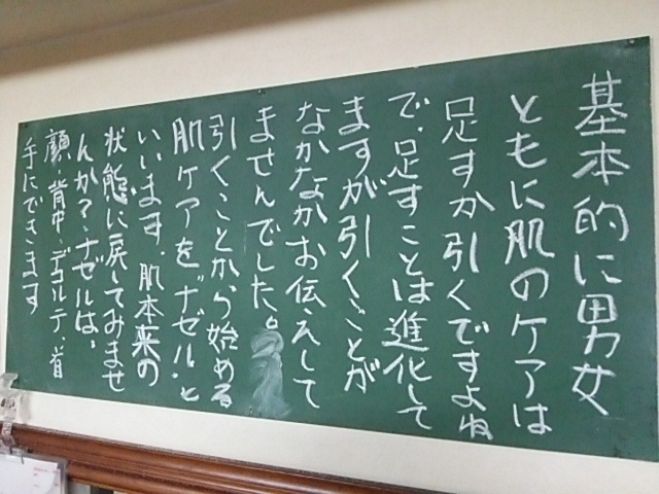 基本的に男女
ともに肌のケアは
足すか引くですよね
で、足すことは進化して
ますが引くことが
なかなかお伝えして
ませんでした。
引くことから始める
肌ケアを"ナゼル"と
いいます。肌本来の
状態に戻してみませ
んか？、ナゼルは、
顔、背中、デコルテ、首
手にできます